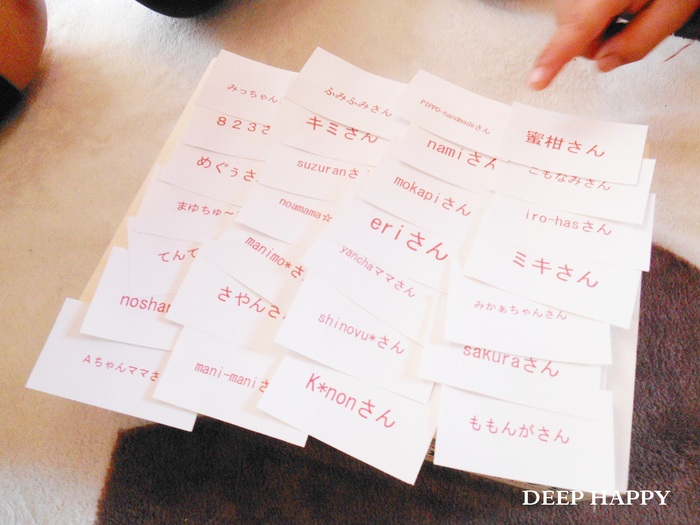 みっちゃん
823さ
めぐぅさ
まゆちゅ～
てんて
noshar
Aちゃんママさ
ふみふみさん
キミさん
suzuranさ
noamama☆
manimo*さ
さやんさ
mani-maniさ
PUPPO-handmadeさん
namiさん
mokapiさん
eriさん
yanchaママさん
shinovu*さん
K*nonさん
蜜柑さん
こもなみさん
iro-hasさん
ミキさん
みかぁちゃんさん
sakuraさん
ももんがさん
DEEP HAPPY